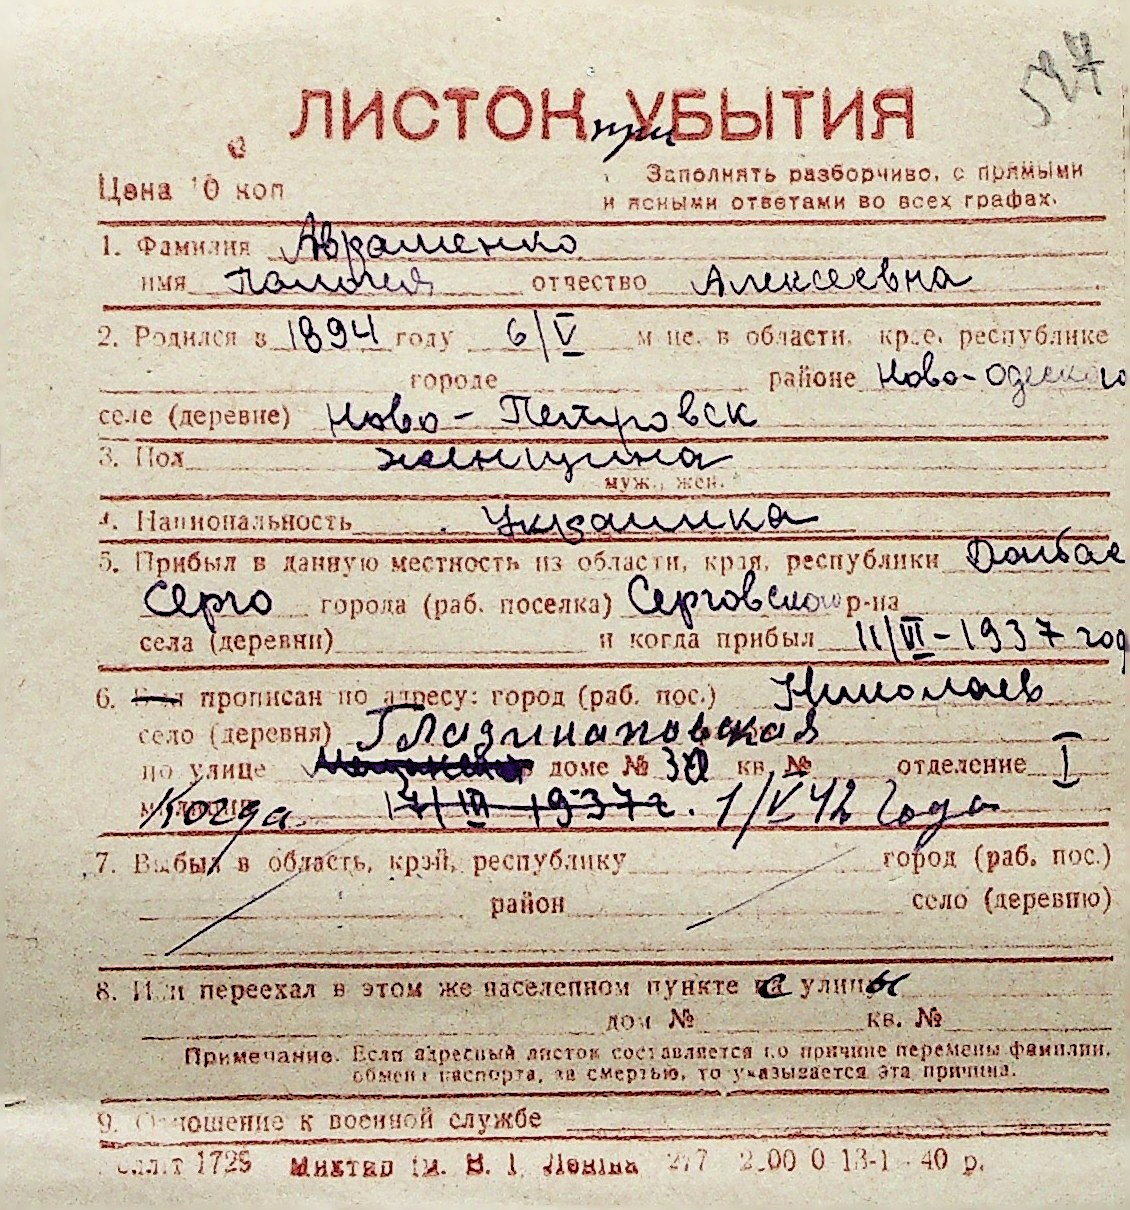 547
ЛИСТОК при УБЫТИЯ
Цена 10 коп
Заполнять разборчиво, с прямыми
и ясными ответами во всех графах.
1. Фамилия Авраменко
имя Палагея отчество Алексеевна
2. Родился в 1894 году 6/V м-це, в области, крае, республике
городе районе Ново-Одесского
селе (деревне) Ново-Петровск
3. Пол женщина
муж., жен.
4. Национальность Украинка
5. Прибыл в данную местность из области, края, республики Донбас
Серго города (раб. поселка) Серговского р-на
села (деревни) и когда прибыл 11/VI-1937 год
6. Был прописан по адресу: город (раб. пос.) Николаев
село (деревня)
по улице доме № 30 кв. № отделение I
милиции Когда 17/III 1937 г. 1/V 42 Года
7. Выбыл в область, край, республику город (раб. пос.)
район село (деревню)
8. Или переехал в этом же населенном пункте на улицы
дом № кв. №
Примечание. Если адресный листок составляется по причине перемены фамилии,
обмен паспорта, за смертью, то указывается эта причина.
9. Отношение к военной службе
1725 Миктар ім. В. І. Леніна 40 р.